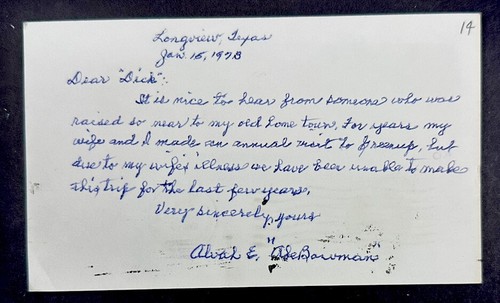 14
Longview, Texas
Jan. 15, 1973
Dear "Dick":
It is nice to hear from someone who was
raised so near to my old home town. For years my
wife and I made an annual visit to Greenup, but
due to my wifes illness we have been unable to make
this trip for the last few years.
Very sincerely, yours
Alvah E. "Abe Bowman"